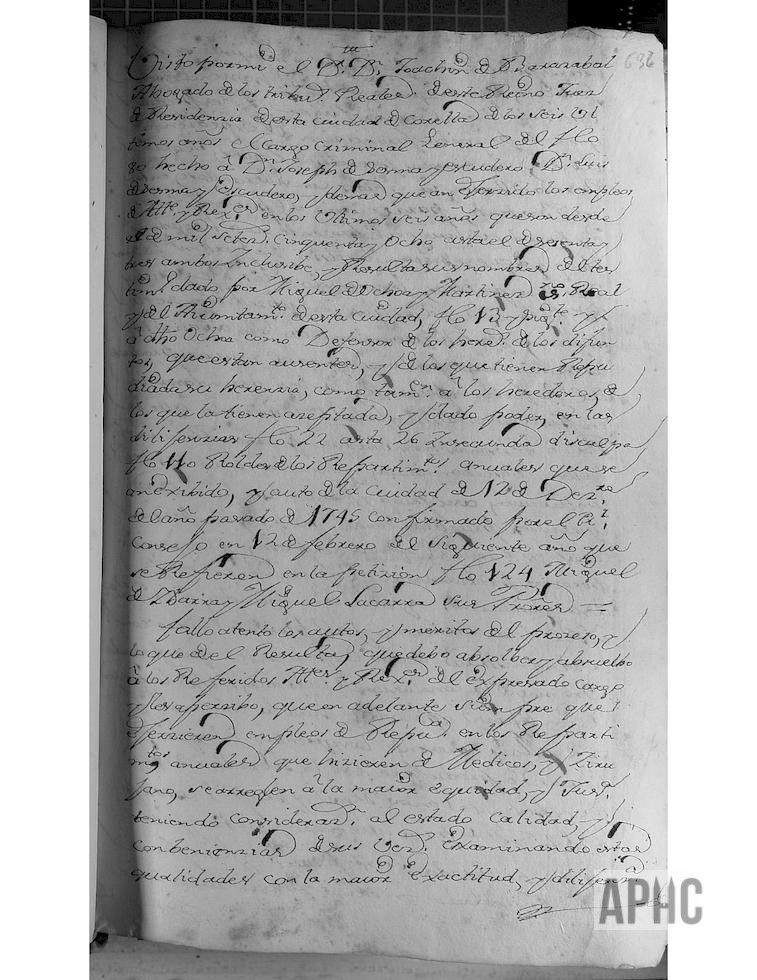 636
Visto por mi el Dr. Dn. Joachin de
Abogado de los tribus. Reales de este Reino Juez
de Residenzia de esta ciudad de Corella de los seis Ul
timos años el Cargo Criminal General del flo
80 hecho a Dn. Joseph de Sesma y escudero Dn. Luis
de Sesma y escudero, y demas que an exerzido los empleos
de Alldes. y Rexres. en los Ultimos seis años que son desde
el de mil setezs. cinquenta y Ocho asta el de sesenta y
tres ambos Inclusibe, y Resulta sus nombres del tes
timo. dado por Miguel de Ochoa y Martinez no. Real
y del Aiuntamto. de esta Ciudad, flo
a dho Ochoa como Defensor de los hereds. de los difun
tos, que estan ausentes, y de los que tienen Repu
diada su herenzia, como tamen. a los herederos, de
los que la tienen azeptada, y dado poder, en las
dilijenzias flo 22 asta 26 Insecunda disculpa
flo 110 Roldes de los Repartimtos. anuales que se
an exibido, y auto de la Ciudad de 12 de Dezre.
del año pasado de 1745 confirmado por el Rl.
Consejo en 12 de febrero del siguiente año que
se Refieren en la petizion flo 124 Miguel
de Ibarra y Miguel Lacarra sus Prores =
fallo atento los autos, y meritos del prozeso, y
lo que de el Resulta, que debo absolber y absuelbo
a los Referidos Alldes. y Rexres. del expresado cargo
y les aperzibo, que en adelante siempre que
exerzieren empleos de Repuca. en los Reparti
mtos. anuales que hizieren de Medicos, y Ziru
jano, se arreglen a la maior equidad, y Jusa.
teniendo considerazn. al estado Calidad, y
conbenienzias de sus Vezs. examinando estas
qualidades con la maior exactitud, y dilijenza.
APHC